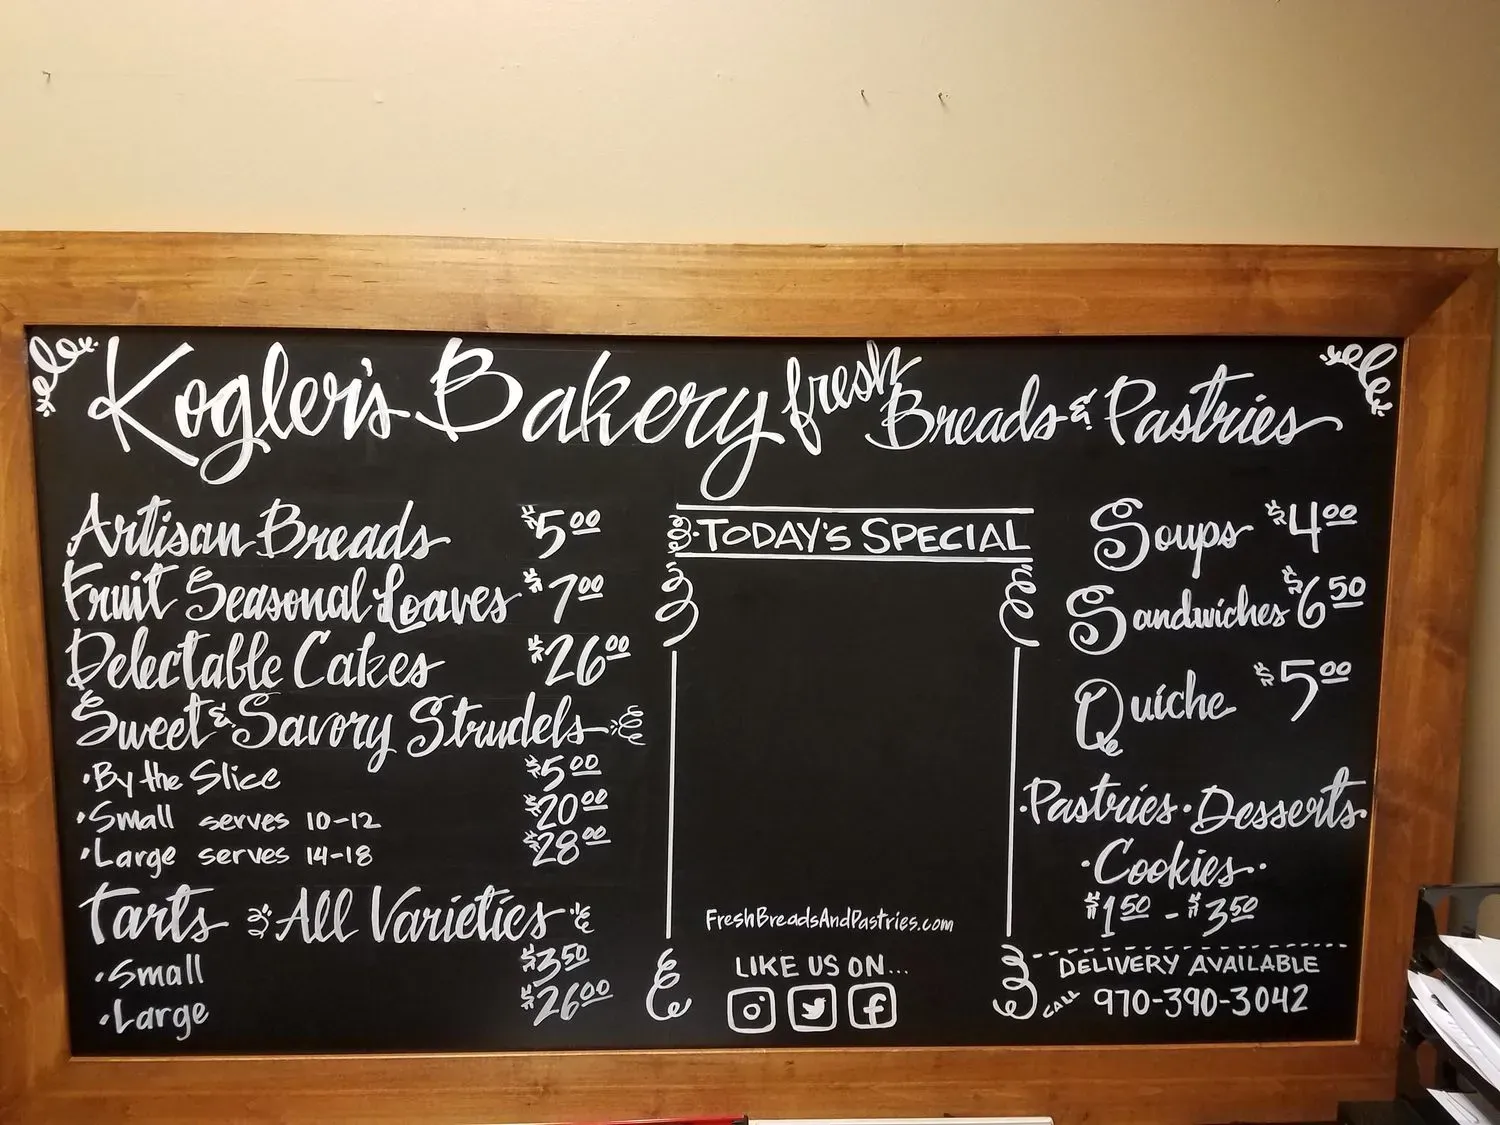 Kogler's Bakery fresh Breads & Pastries
Artisan Breads $5.00
Fruit Seasonal Loaves $7.00
Delectable Cakes $26.00
Sweet & Savory Strudels
• By the Slice $5.00
• Small serves 10-12 $20.00
• Large serves 14-18 $28.00
Tarts All Varieties
• Small $3.50
• Large $26.00
TODAY'S SPECIAL
FreshBreadsAndPastries.com
LIKE US ON...
Soups $4.00
Sandwiches $6.50
Quiche $5.00
• Pastries • Desserts •
• Cookies •
$1.50 - $3.50
DELIVERY AVAILABLE
CALL 970-390-3042